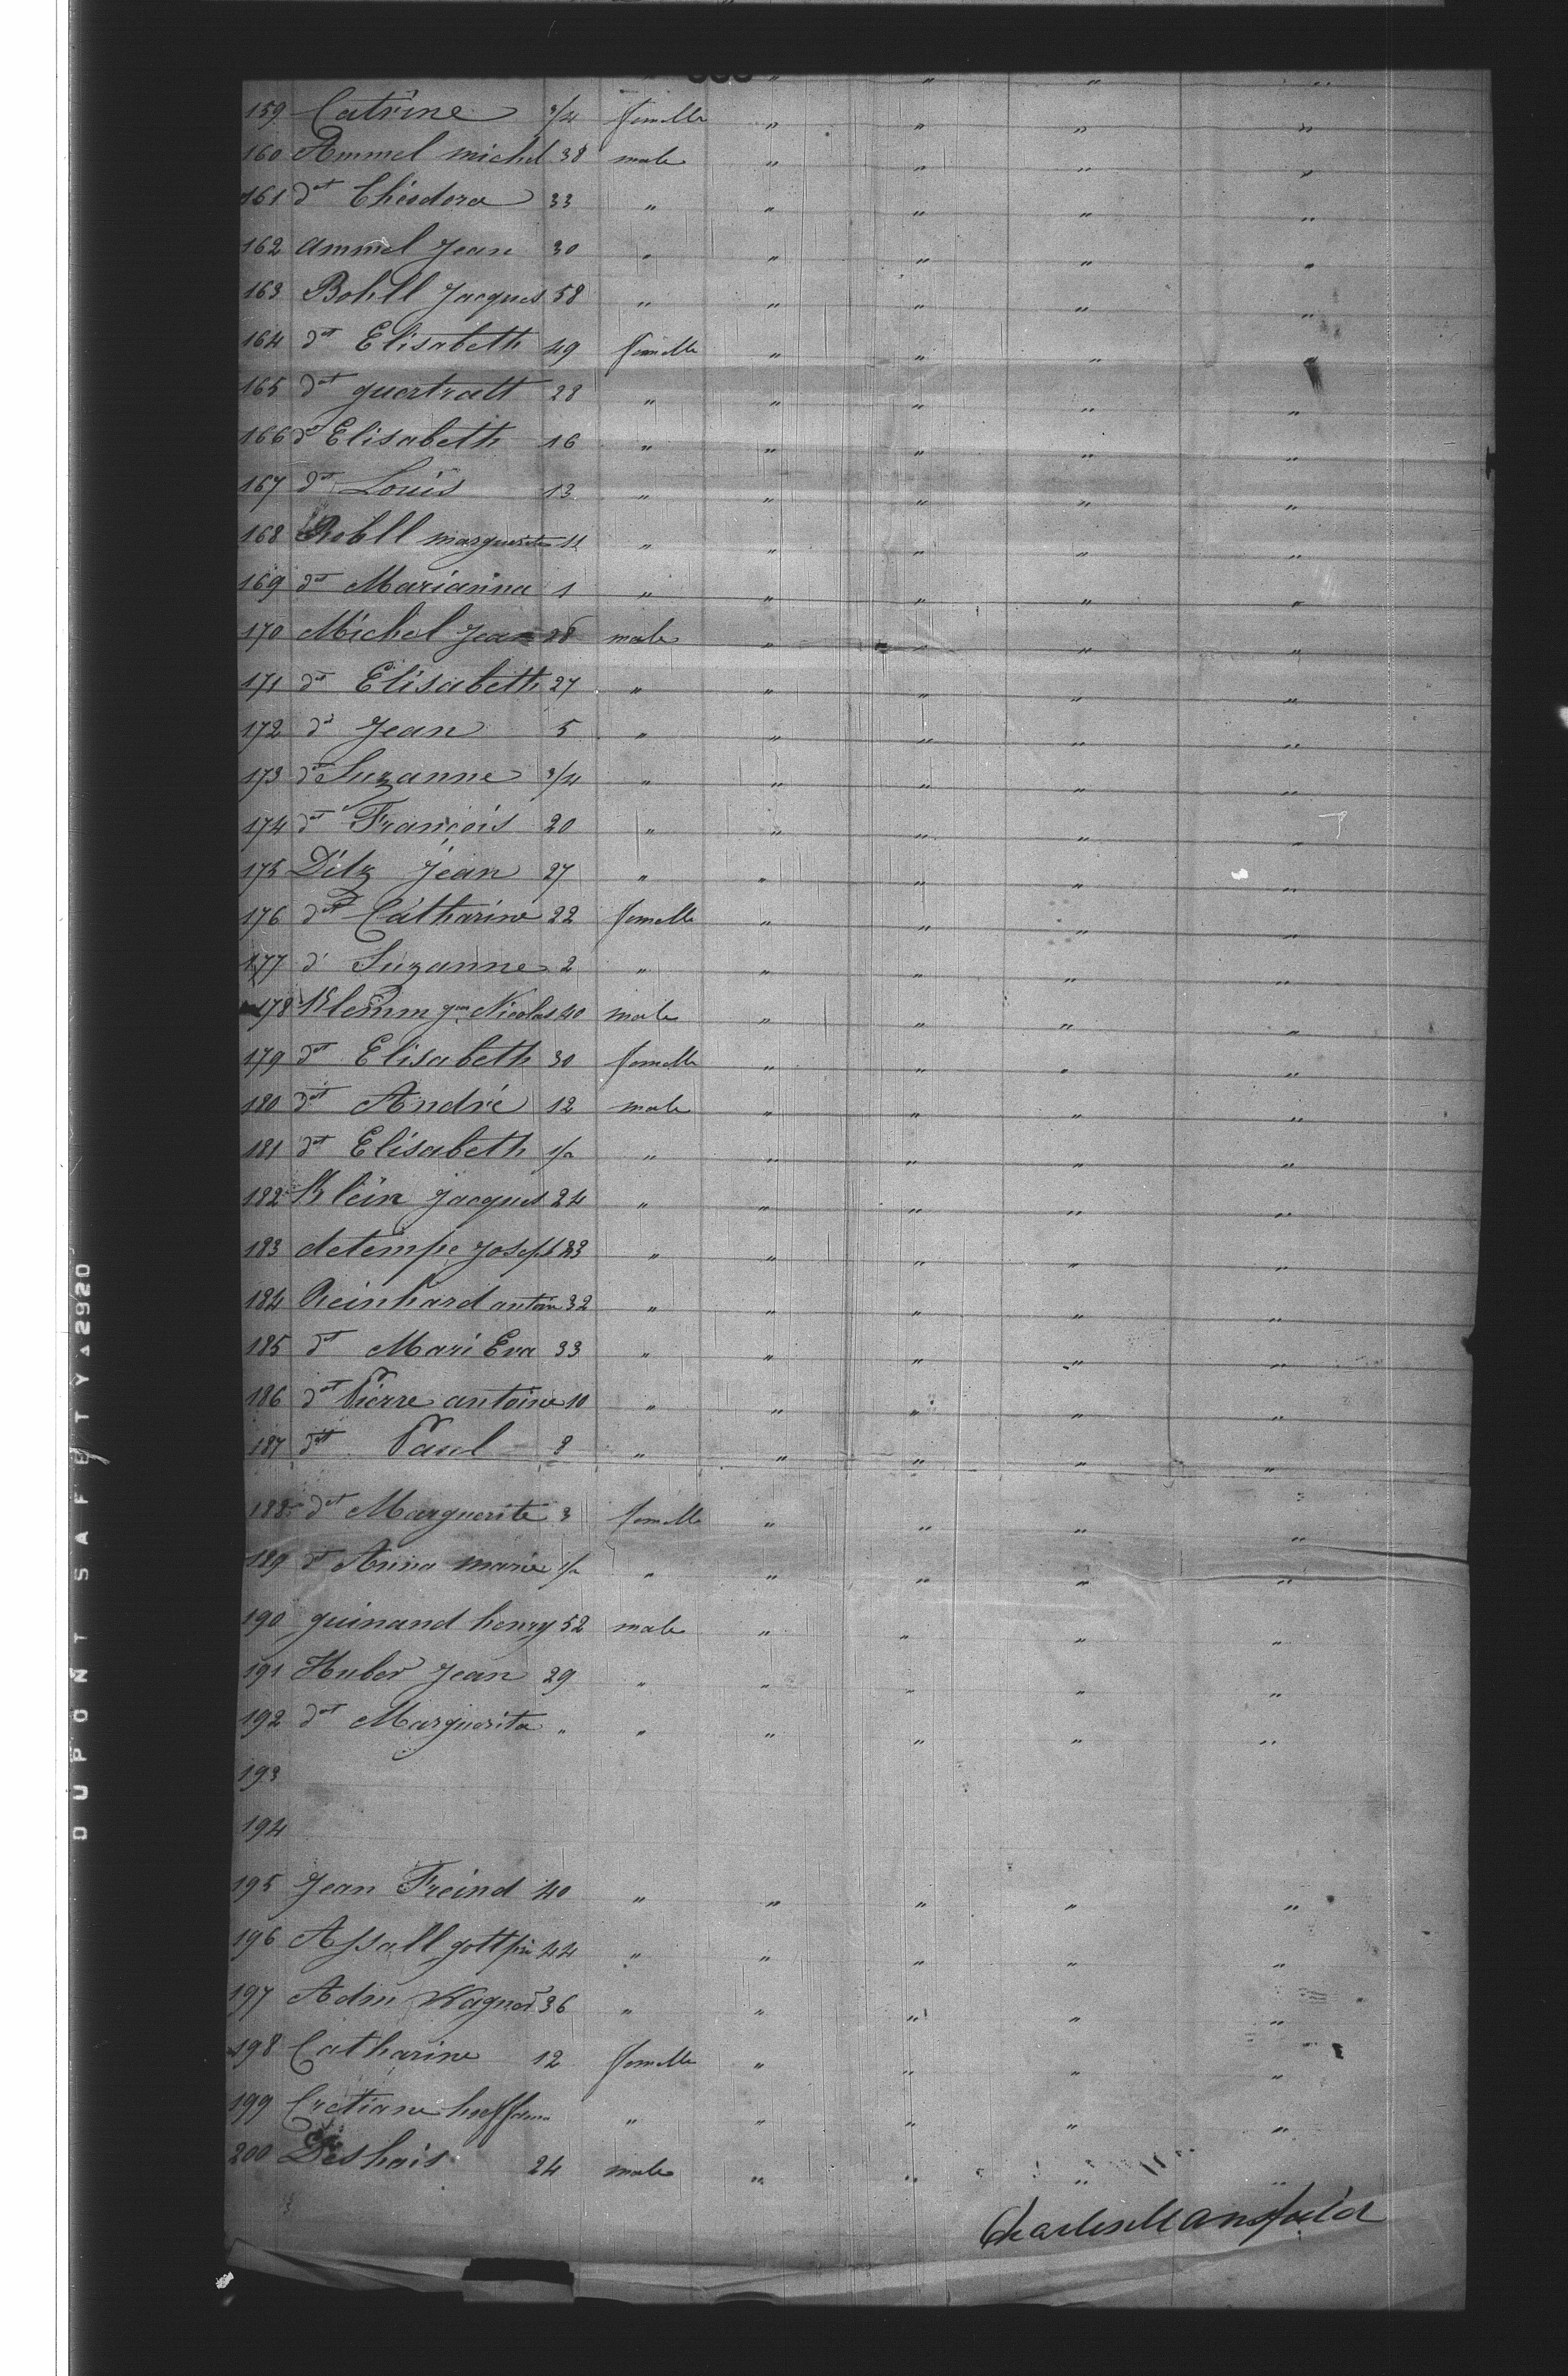 " " " "
159 Catrine 3/4 femelle " " " "
160 Ammel michel 38 male " " " "
161 dt Théodora 33 " " " " "
162 ammel Jean 30 " " " " "
163 Bohll Jacques 58 " " " " "
164 dt Elisabeth 49 femelle " " " "
165 dt guertratt 28 " " " " "
166 dt Elisabeth 16 " " " " "
167 dt Louis 13 " " " " "
168 Bohll marguerite 11 " " " " "
169 dt Marianna 1 " " " " "
170 Michel Jean 28 male " " " "
171 dt Elisabeth 27 " " " " "
172 dt Jean 5 " " " " "
173 dt Suzanne 3/4 " " " " "
174 dt François 20 " " " " "
175 Ditz Jean 27 " " " " "
176 dt Catharine 22 femelle " " " "
177 dt Suzanne 2 " " " " "
178 Klemm Nicolas 40 male " " " "
179 dt Elisabeth 30 femelle " " " "
180 dt André 12 male " " " "
181 dt Elisabeth 1/2 " " " " "
182 Klein Jacques 24 " " " " "
183 detempe Joseph 23 " " " " "
184 Reinhard antoin 32 " " " " "
185 dt Mari Eva 33 " " " " "
186 dt Pierre antoine 10 " " " " "
187 dt Paul 8 " " " " "
188 dt Marguerite 3 femelle " " " "
189 dt Anna marie 1/2 " " " " "
190 guinand henry 52 male " " " "
191 Huber Jean 29 " " " " "
192 dt Marguerita " " " " " "
193
194
195 Jean Freind 40 " " " " "
196 Assall 44 " " " " "
197 Adm Wagner 36 " " " " "
198 Catharine 12 femelle " " " "
199 Cretiane " " " " "
200 Deshais 24 male " " " "
Charles Mansfield
DUPONT SAFETY 2920